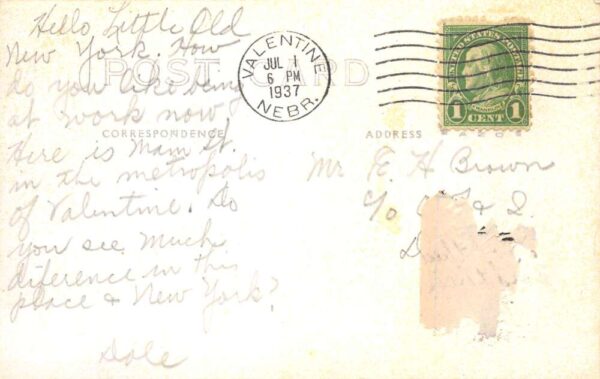 Hello Little Old
New York. How
do you like being
at work now.
Here is Main St.
in the metropolis
of Valentine. Do
you see much
diference in this
place & New York?
Dale
POST CARD
CORRESPONDENCE
ADDRESS
VALENTINE
JUL 1
6 PM
1937
NEBR.
UNITED STATES POSTAGE
1 CENT 1
Mr E. H Brown
c/o & Q.